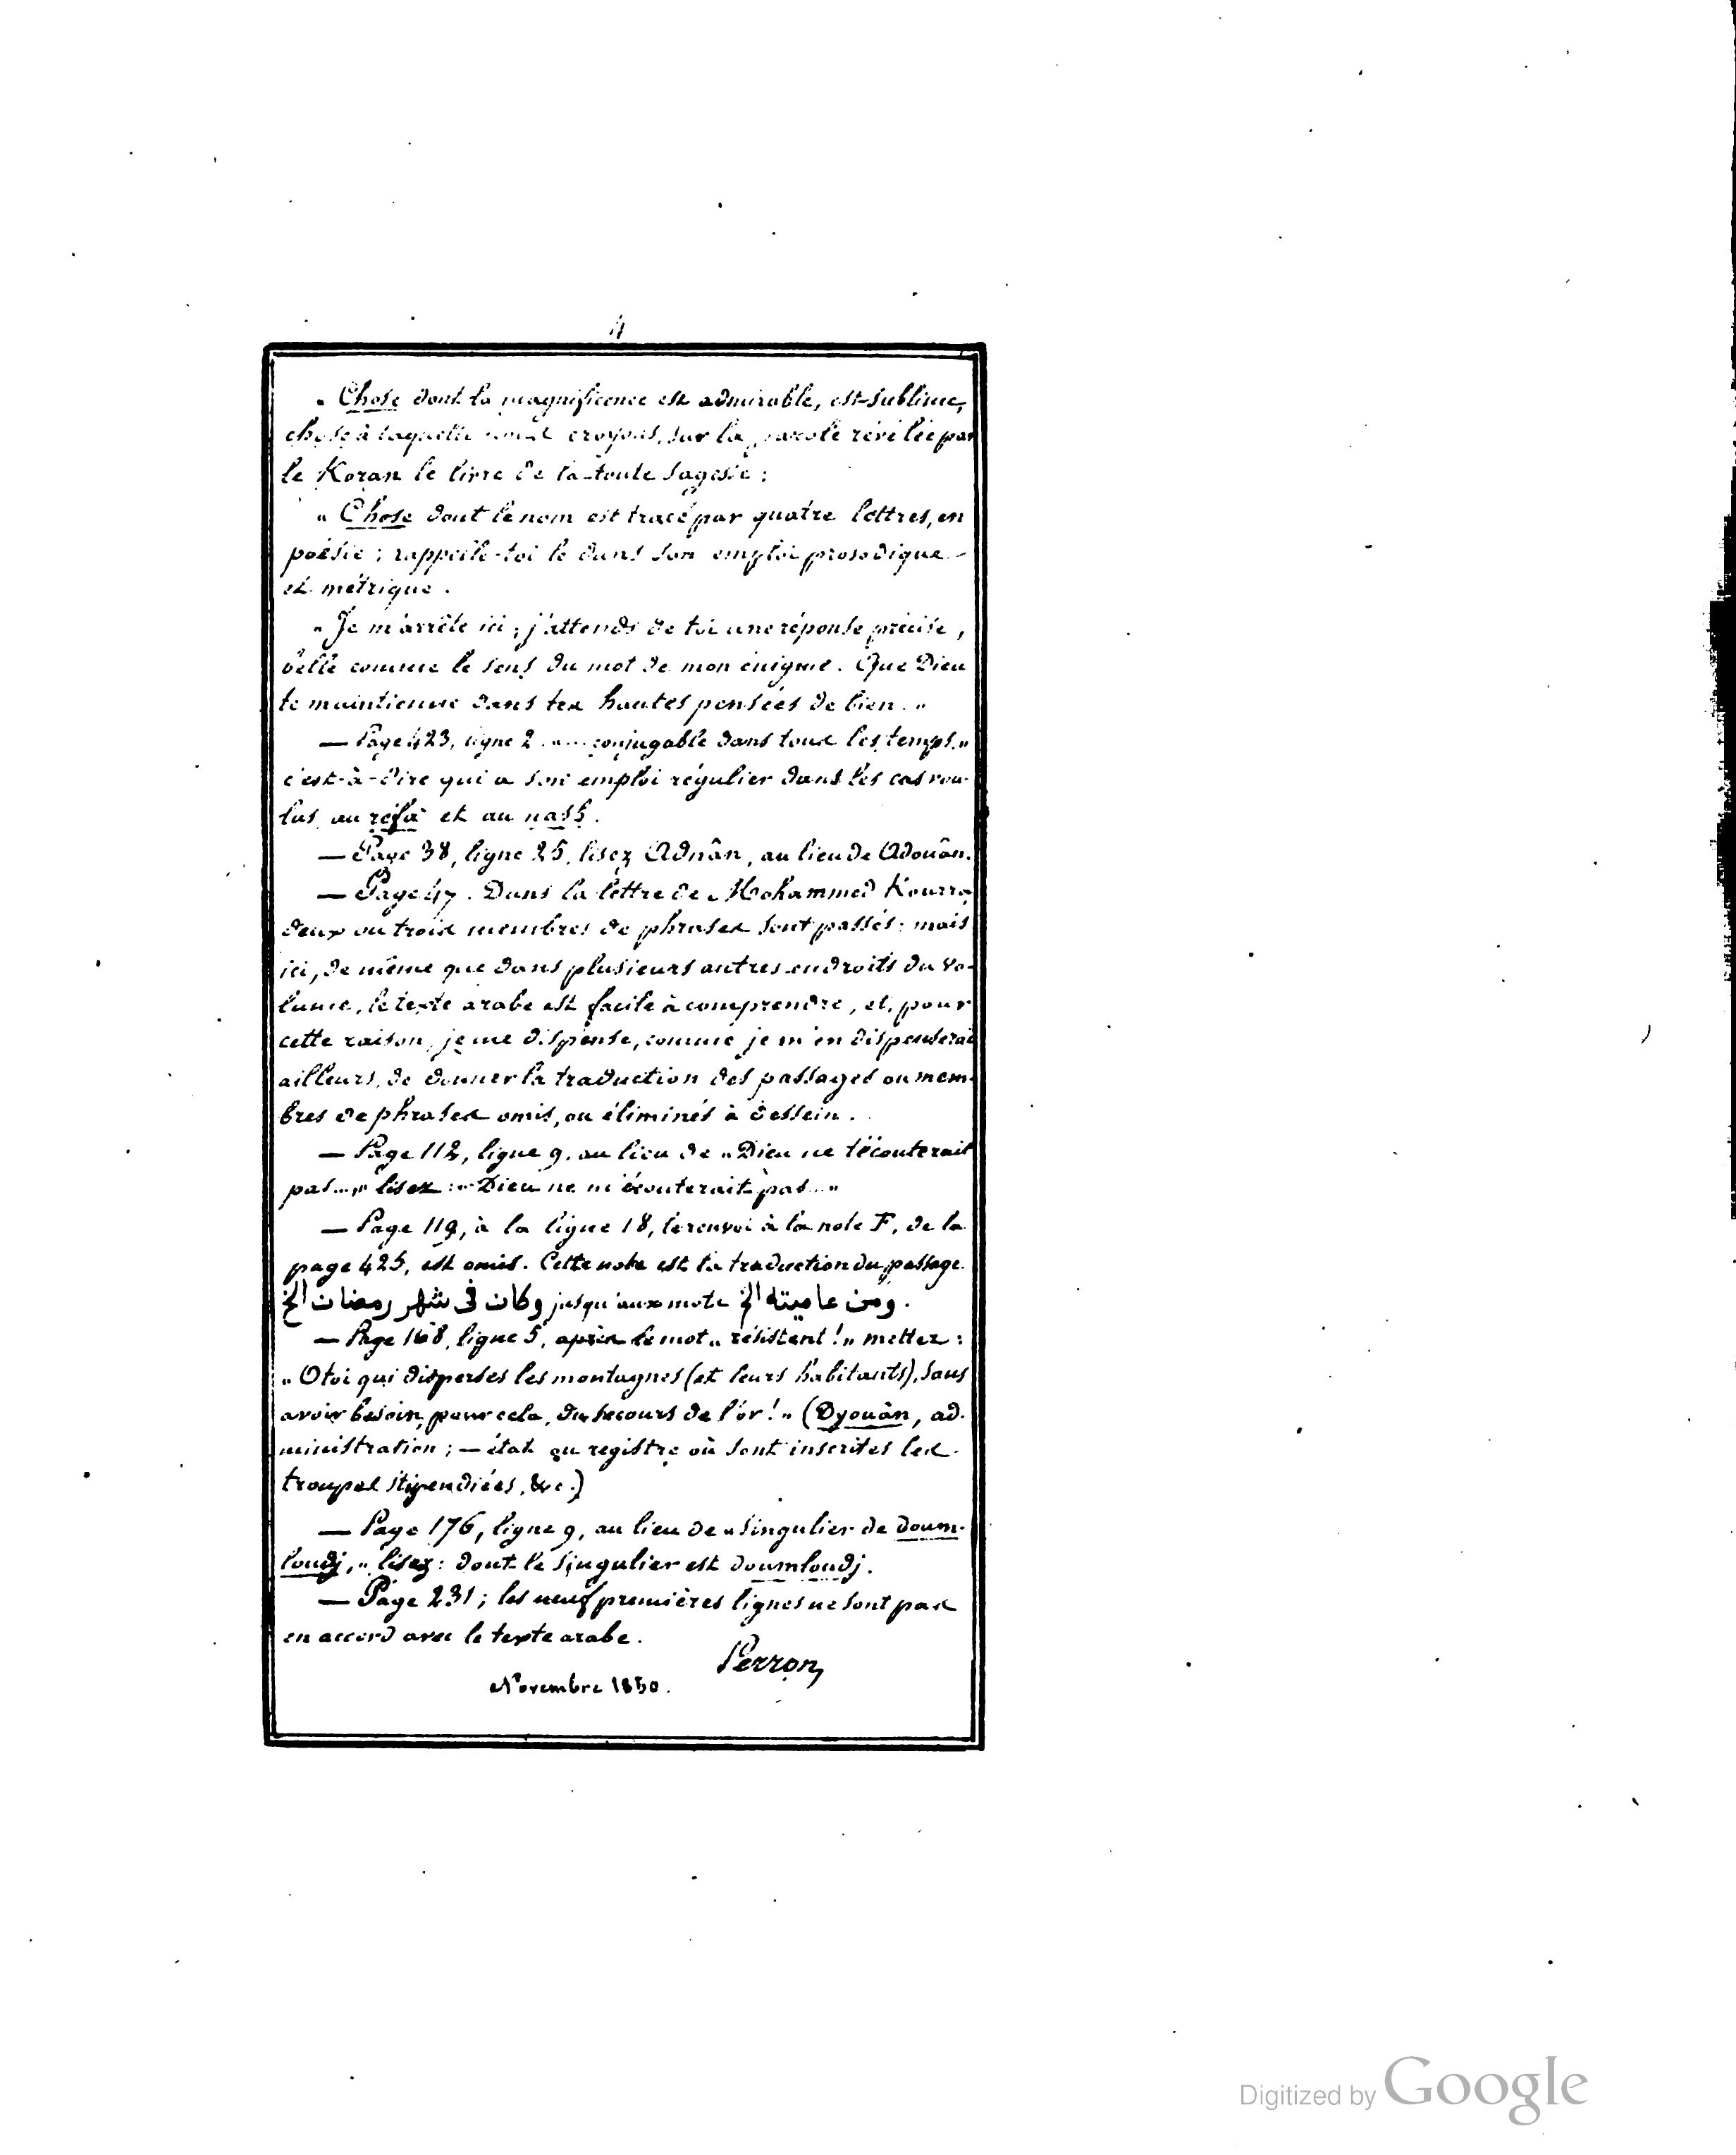 4
« Chose dont la magnificence est admirable, est sublime,
chose à laquelle nous croyons, sur la parole révélée par
le Koran le livre de la toute sagesse :
« Chose dont le nom est tracé par quatre lettres, en
poésie ; rappelle-toi le dans son emploi prosodique
et métrique.
« Je m'arrête ici ; j'attends de toi une réponse précise,
belle comme le sens du mot de mon énigme. Que Dieu
te maintienne dans tes hautes pensées de bien. »
— Page 423, ligne 2. «... conjugable dans tous les temps »
c'est-à-dire qui a son emploi régulier dans les cas vou-
lus, au refa et au nasb.
— Page 38, ligne 25, lisez Adnân, au lieu de Adouân.
— Page 47. Dans la lettre de Mohammed Kourra,
deux ou trois membres de phrases sont passés : mais
ici, de même que dans plusieurs autres endroits du vo-
lume, le texte arabe est facile à comprendre, et, pour
cette raison, je me dispense, comme je m'en dispenserai
ailleurs, de donner la traduction des passages ou mem-
bres de phrases omis, ou éliminés à dessein.
— Page 112, ligne 9, au lieu de « Dieu ne t'écouterait
pas... » lisez : « Dieu ne m'écouterait pas... »
— Page 119, à la ligne 18, le renvoi à la note F, de la
page 425, est omis. Cette note est la traduction du passage
وكان فى شهر رمضان الخ jusqu'aux mots ومن عاميته الخ.
— Page 168, ligne 5, après le mot « résistent ! » mettez :
« O toi qui disperses les montagnes (et leurs habitants), sans
avoir besoin, pour cela, du secours de l'or ! » (Dyouân, ad-
ministration ; — état ou registre où sont inscrites les
troupes stipendiées, &c.)
— Page 176, ligne 9, au lieu de « singulier de doum-
loudj, » lisez : dont le singulier est doumloudj.
— Page 231 ; les neuf premières lignes ne sont pas
en accord avec le texte arabe.
Perron
Novembre 1850.
Digitized by Google